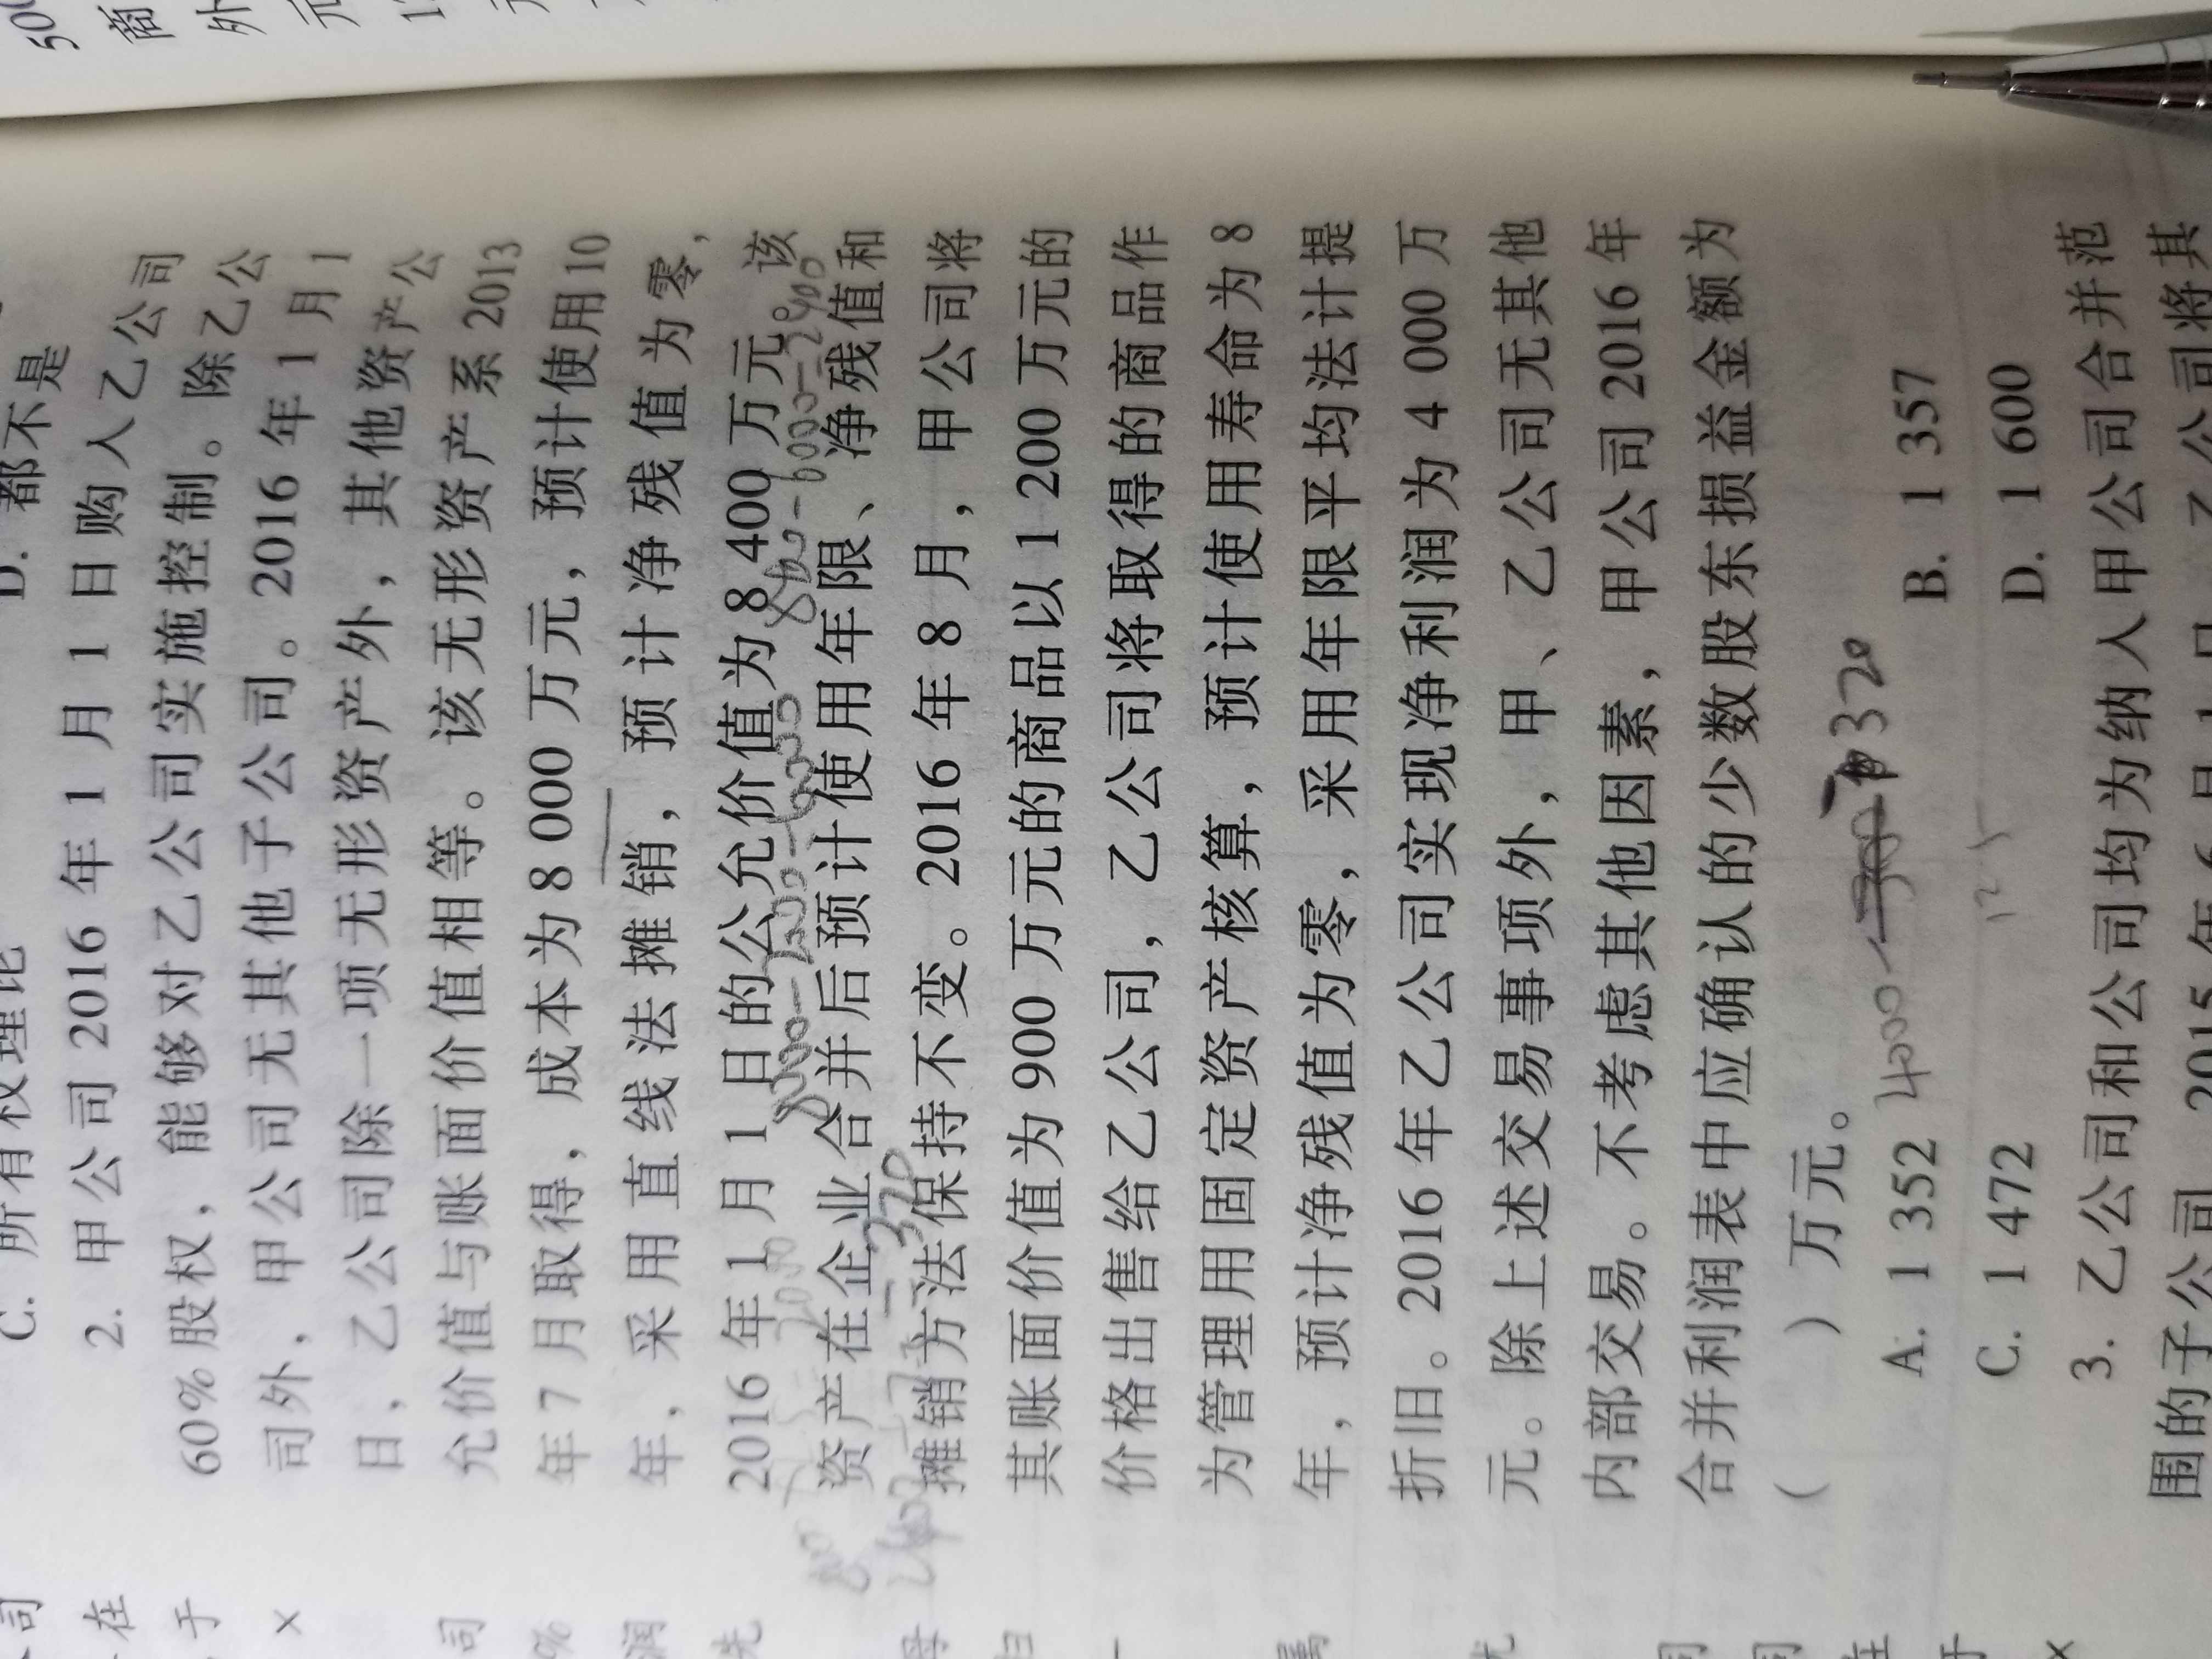 D. 都不是
C. 所有权理论
2. 甲公司 2016 年 1 月 1 日购入乙公司
60%股权，能够对乙公司实施控制。除乙公
司外，甲公司无其他子公司。2016 年 1 月 1
日，乙公司除一项无形资产外，其他资产公
允价值与账面价值相等。该无形资产系 2013
年 7 月取得，成本为 8 000 万元，预计使用 10
年，采用直线法摊销，预计净残值为零，
2016 年 1 月 1 日的公允价值为 8 400 万元。该
资产在企业合并后预计使用年限、净残值和
摊销方法保持不变。2016 年 8 月，甲公司将
其账面价值为 900 万元的商品以 1 200 万元的
价格出售给乙公司，乙公司将取得的商品作
为管理用固定资产核算，预计使用寿命为 8
年，预计净残值为零，采用年限平均法计提
折旧。2016 年乙公司实现净利润为 4 000 万
元。除上述交易事项外，甲、乙公司无其他
内部交易。不考虑其他因素，甲公司 2016 年
合并利润表中应确认的少数股东损益金额为
（ ）万元。
A. 1 352 4000 320 B. 1 357
C. 1 472 D. 1 600
3. 乙公司和公司均为纳入甲公司合并范
围的子公司